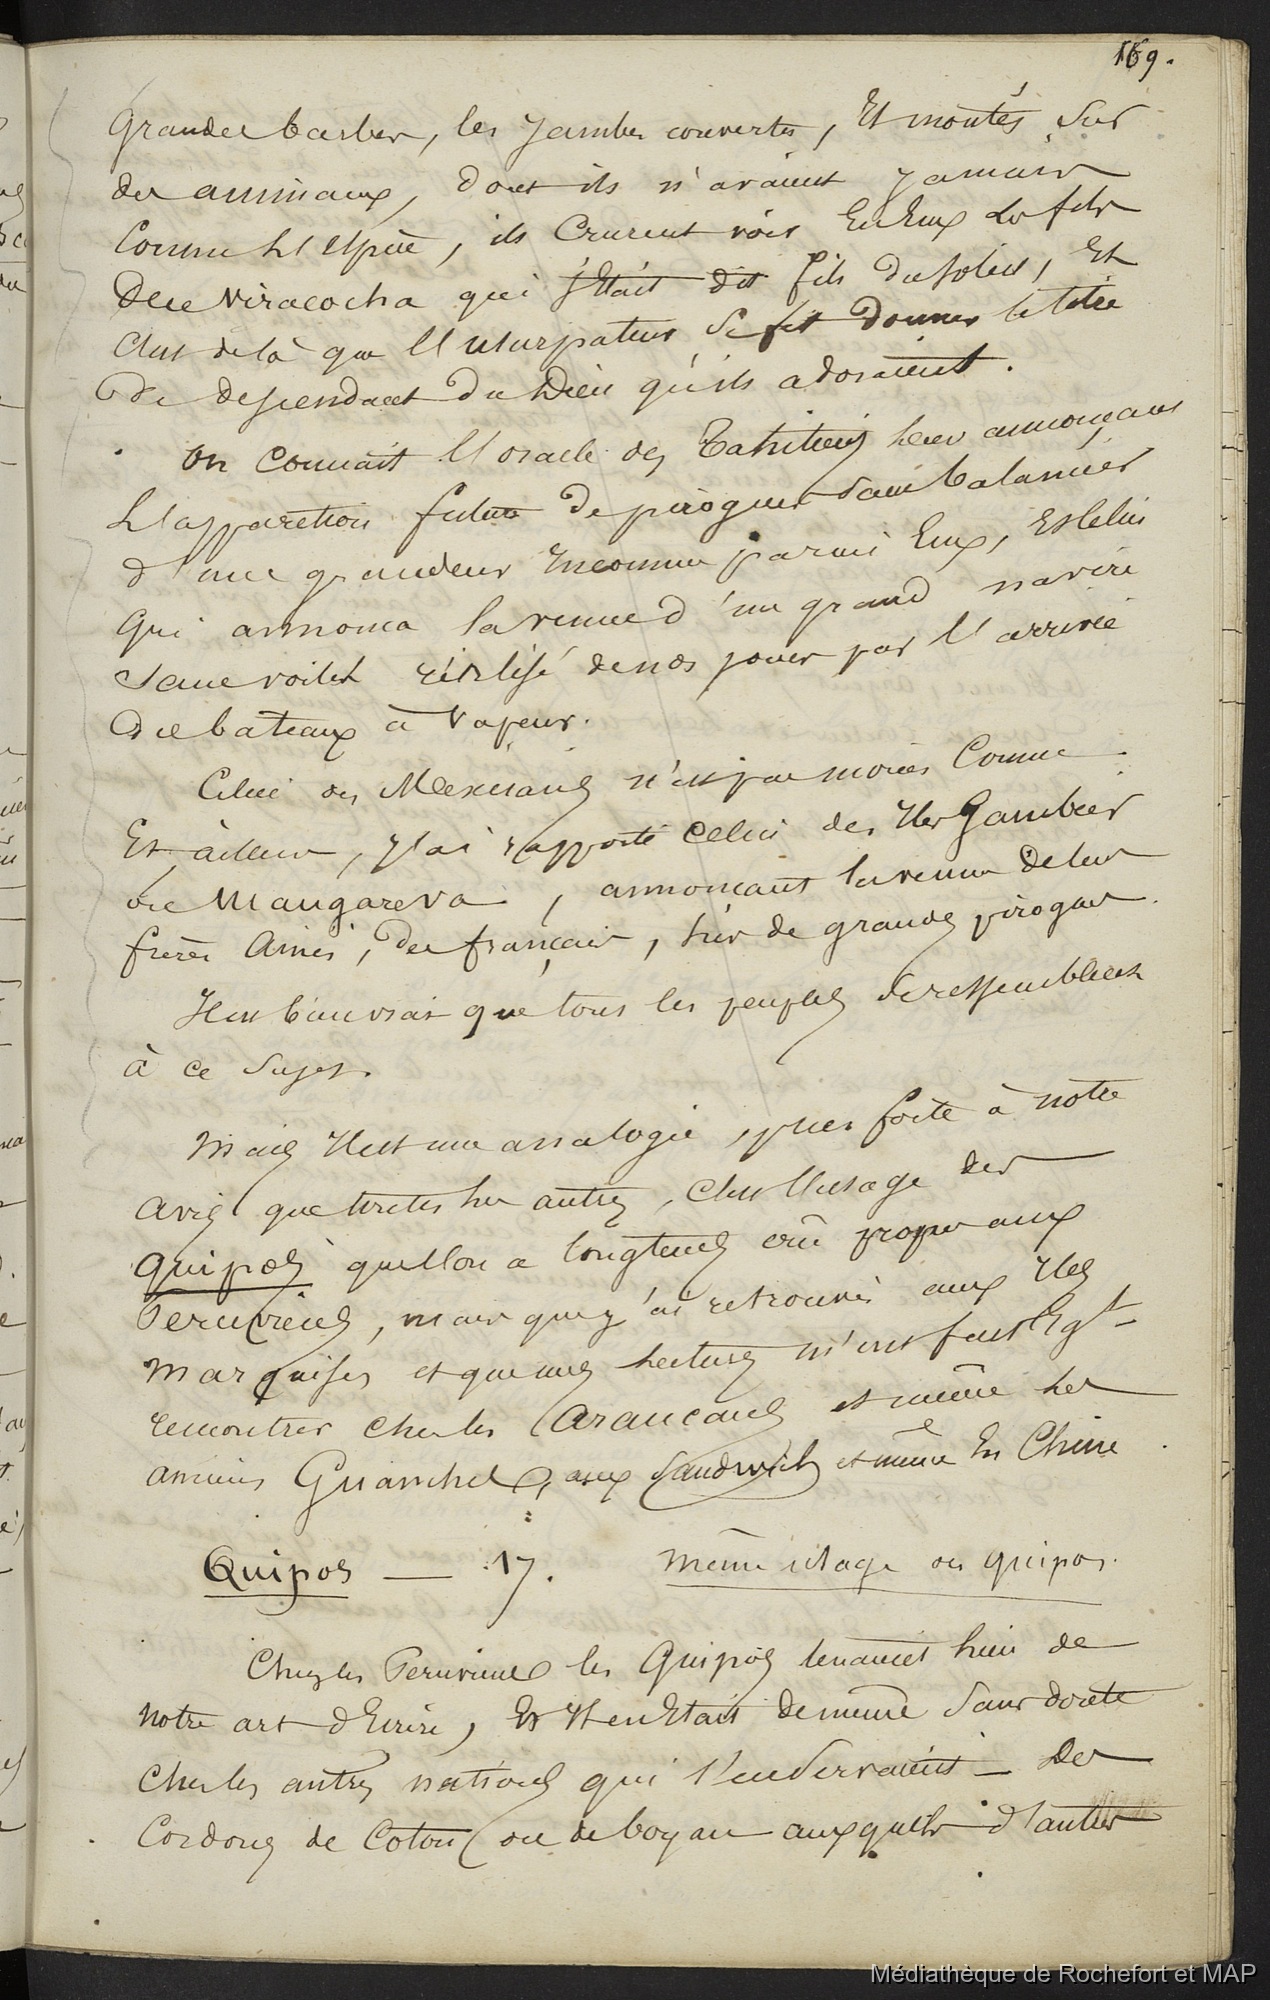 169.
Grandes barbes, les jambes couvertes, Et montés sur
des animaux, dont ils n'avaient jamais
connu l'Espèce, ils crurent voir En Eux les fils
De Viracocha qui s'Etait dit fils du soleil, Et
C'est de là que l'usurpateur se fit donner le titre
de descendant du Dieu qu'ils adoraient.
On connait l'oracle des Tahitiens leur annonçant
L'apparition future de pirogues sans balancier
d'une grandeur Inconnue parmi Eux, Et celui
qui annonça la venue d'un grand navire
sans voiles réalisé de nos jours par l'arrivée
des bateaux à Vapeur.
Celui des Mexicains n'est pas moins Connu
Et ailleurs, j'ai rapporté celui des Iles Gambier
ou Mangareva, annonçant la venue de leurs
frères Ainés, des français, sur de grandes pirogues.
Il est bien vrai que tous les peuples se ressemblent
à ce sujet.
Mais Il est une analogie, plus forte à notre
avis que toutes les autres, C'est l'usage des
quipos que l'on a longtemps crû propre aux
Peruviens, mais que j'ai retrouvés aux Iles
Marquises et que mes lectures m'ont fait Egt
rencontrer chez les Araucans et même les
anciens Guanches, aux Sandwich et même En Chine
Quipos — 17. Même usage des quipos.
Chez les Peruviens les Quipos tenaient lieu de
notre art d'Ecrire, Et Il en Etait de même sans doute
chez les autres nations qui s'en servaient — Des
Cordons de Coton ou de boyau auxquels d'autres
Médiathèque de Rochefort et MAP